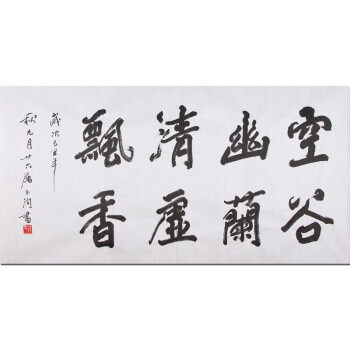 空谷
幽蘭
清虛
飄香
歲次己丑年
秋九月廿六
書